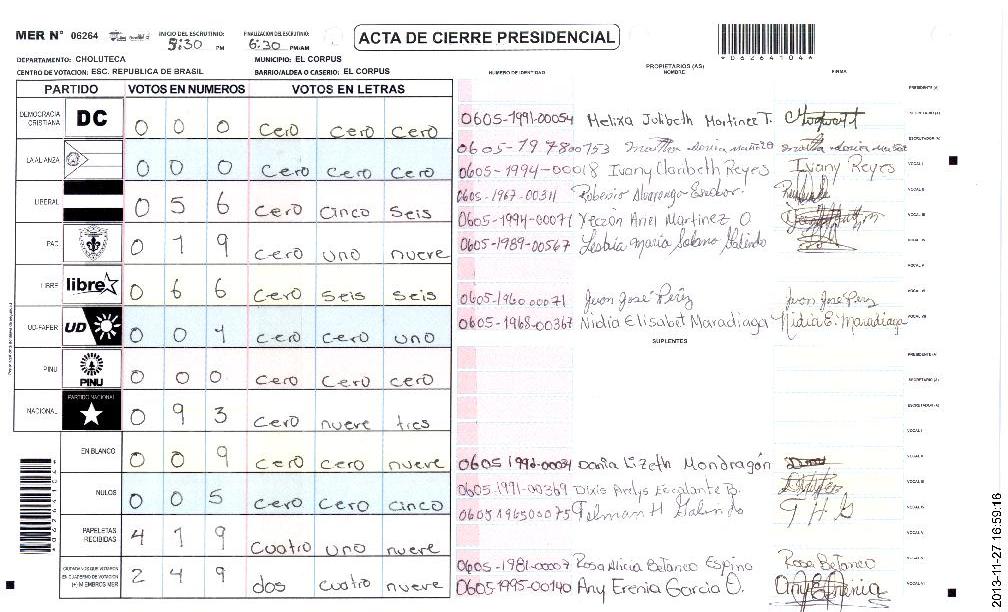 MER N° 06264
INICIO DEL ESCRUTINIO: 5:30 PM
FINALIZACION DEL ESCRUTINIO: 6:30 PM/AM
ACTA DE CIERRE PRESIDENCIAL
*06264104*
DEPARTAMENTO: CHOLUTECA MUNICIPIO: EL CORPUS
CENTRO DE VOTACION: ESC. REPUBLICA DE BRASIL BARRIO/ALDEA O CASERIO: EL CORPUS
PARTIDO VOTOS EN NUMEROS VOTOS EN LETRAS
DEMOCRACIA CRISTIANA DC 0 0 0 cero cero cero
LA ALIANZA 0 0 0 cero cero cero
LIBERAL 0 5 6 cero cinco seis
PAC 0 1 9 cero uno nueve
LIBRE libre 0 6 6 cero seis seis
UD-FAPER UD 0 0 1 cero cero uno
PINU PINU 0 0 0 cero cero cero
NACIONAL PARTIDO NACIONAL 0 9 3 cero nueve tres
EN BLANCO 0 0 9 cero cero nueve
NULOS 0 0 5 cero cero cinco
PAPELETAS RECIBIDAS 4 1 9 cuatro uno nueve
CIUDADANOS QUE VOTARON EN CUADERNO DE VOTACION (+) MIEMBROS MER 2 4 9 dos cuatro nueve
NUMERO DE IDENTIDAD PROPIETARIOS (AS) NOMBRE FIRMA
PRESIDENTE (A)
0605-1991-00054 Melixa Julibeth Martinez T. SECRETARIO (A)
0605-197800753 ESCRUTADOR (A)
0605-1994-00018 Ivany Claribeth Reyes Ivany Reyes VOCAL I
0605-1967-00311 VOCAL II
0605-1994-00071 Yeczon Ariel Martinez O VOCAL III
0605-1989-00567 Lesbia Maria Solano Galindo VOCAL IV
VOCAL V
0605-1960 00071 Juan José Periz Juan José Perz VOCAL VI
0605-1968-00367 Nidia Elisabet Maradiaga Nidia E. Maradiaga VOCAL VII
SUPLENTES
PRESIDENTE (A)
SECRETARIO (A)
ESCRUTADOR (A)
VOCAL I
0605 1992-00034 Dania Lizeth Mondragón VOCAL II
0605-1991-00369 Dixis Arelys Escalante B. VOCAL III
0605196500075 Telman H Galindo T H G VOCAL IV
VOCAL V
0605-1981-00007 Rosa Alicia Betanco Espino Rosa Betanco
0605 1995-00140 Any Erenia Garcia O. Any Erenia VOCAL VII
2013-11-27 16:59:16